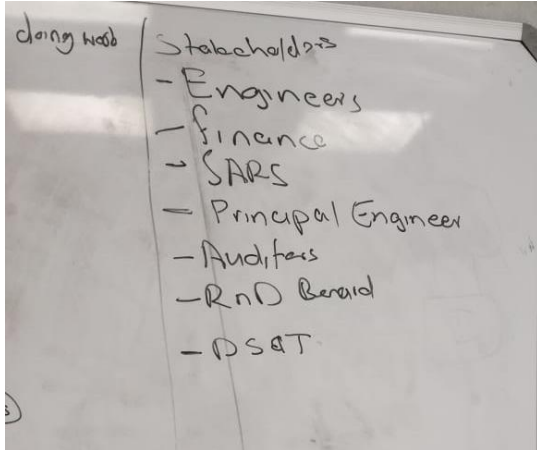 doing work
Stakeholders
- Engineers
- finance
- SARS
- Principal Engineer
- Auditors
- RnD
- DSAT
s